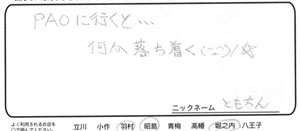 PAOに行くと…
何か落ち着く(ᵕᴗᵕ)/☆
ニックネーム ともちん
よく利用されるお店を
○で囲んでください。
立川 小作 羽村 昭島 青梅 高幡 堀之内 八王子